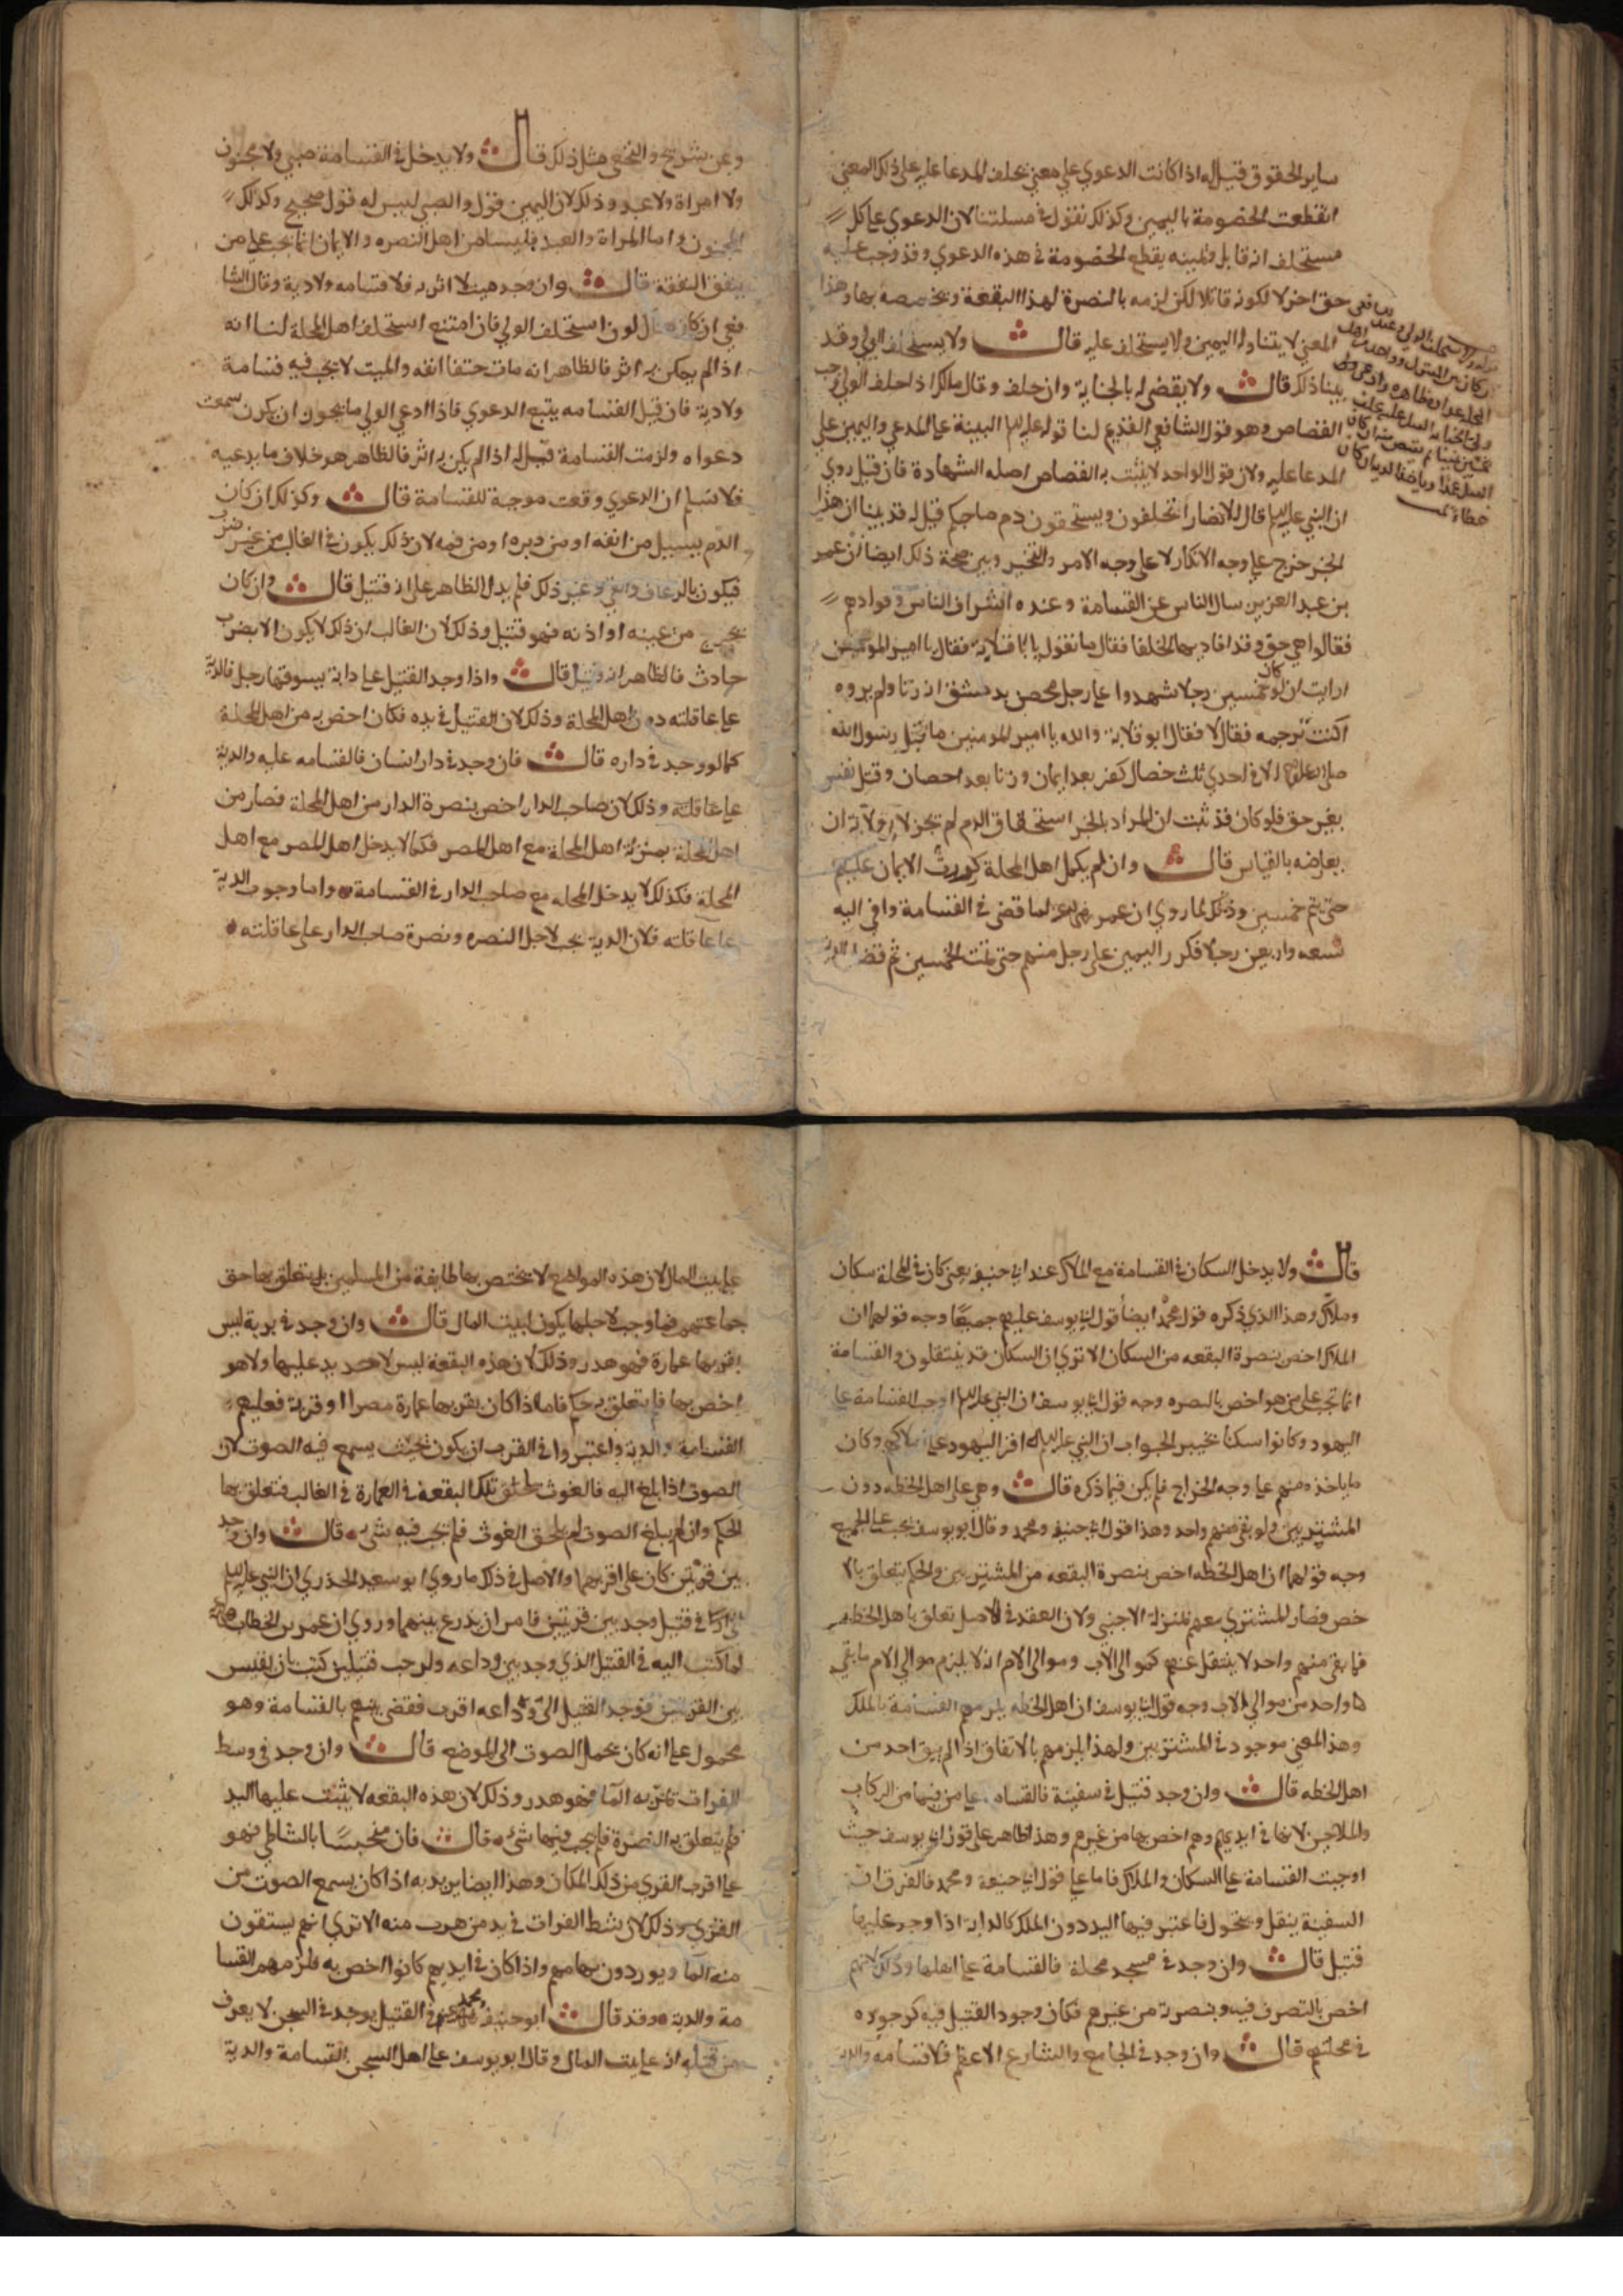 ساير الحقوق قيل له اذا كانت الدعوي علي معني يحلف المدعا عليه علي ذلك المعني
انقطعت الخصومة باليمين وكذلك نقول في مسلتنا لان الدعوي علي كل
مستحلف انه قاتل ويمينه يقطع الخصومة في هذه الدعوي وقد وجب عليه
حق اخر لا لكونه قاتلا لكن لزمه بالنصرة لهذا البقعة وتخصيصه بها وهذا
المعني لا يتناوله اليمين ولا يستحلف عليه قال ولا يستحلف الولي وقد
بينا ذلك قال ولا يقضي له بالجناية وان حلف وقال مالك اذا حلف الولي وجب
القصاص وهو قول الشافعي القديم لنا قوله عليه السلم البينة علي المدعي واليمين علي
المدعا عليه ولان قول الواحد لا يثبت به القصاص اصله الشهادة فان قيل روي
ان النبي عليه السلم قال للانصار اتحلفون وتستحقون دم صاحبكم قيل له قد بينا ان هذا
الخبر خرج علي وجه الانكار لا علي وجه الامر والتخيير ويبين صحة ذلك ايضا ان عمر
بن عبد العزيز سال الناس عن القسامة وعنده اشراف الناس وقوادهم
فقالوا هي حق وقد اقاد بها الخلفا فقال ما تقول يا ابا قلابة فقال يا امير المومنين
ارايت ان لو كان خمسين رجلا شهدوا علي رجل محصن بدمشق انه زنا ولم يروه
اكنت ترجمه فقال لا فقال ابو قلابة والله يا امير المومنين ما قتل رسول الله
صلي الله عليه الا في احدي ثلث خصال كفر بعد ايمان وزنا بعد احصان وقتل نفس
بغير حق فلو كان قد ثبت ان المراد بالخبر استحقاق الدم لم يجز لابي قلابة ان
يعارضه بالقياس قال وان لم يكمل اهل المحلة كررت الايمان عليهم
حتي يتم خمسين وذلك لما روي ان عمر رضي الله عنه لما قضي في القسامة وافي اليه
تسعة واربعين رجلا فكرر اليمين علي رجل منهم حتي تمت الخمسين ثم قضا بالدية
وعن شريح والنخعي مثل ذلك قال ولا يدخل في القسامة صبي ولا مجنون
ولا امراة ولا عبد وذلك لان اليمين قول والصبي ليس له قول صحيح وكذلك
المجنون واما المراة والعبد فليسا من اهل النصره والايمان انما تجب علي من
قال وان وجد ميت لا اثر به فلا قسامه ولا دية وقال الشا
فعي ان كان هنا لوث استحلف الولي فان امتنع استحلف اهل المحلة لنا انه
اذا لم يكن به اثر فالظاهر انه مات حتفا انفه والميت لا يجب فيه قسامة
ولا دية فان قيل القسامه يتبع الدعوي فاذا ادعي الولي ما يجوز ان يكون سمعت
دعواه ولزمت القسامة قيل له اذا لم يكن به اثر فالظاهر هو خلاف ما يدعيه
فلا نسلم ان الدعوي وقعت موجبة للقسامة قال وكذلك ان كان
الدم يسيل من انفه او من دبره او من فمه لان ذلك يكون في الغالب من غير ضرب
فيكون بالرعاف والقي وغير ذلك فلم يدل الظاهر علي انه قتيل قال وان كان
يخرج من عينه او اذنه فهو قتيل وذلك لان الغالب ان ذلك لا يكون الا بضرب
حادث فالظاهر انه قتيل قال واذا وجد القتيل علي دابة يسوقها رجل فالدية
علي عاقلته دون اهل المحلة وذلك لان القتيل في يده فكان اخص به من اهل المحلة
كما لو وجد في داره قال فان وجد في دار انسان فالقسامه عليه والدية
علي عاقلته وذلك لان صاحب الدار اخص بنصرة الدار من اهل المحلة فصار من
اهل المحلة بمنزلة اهل المحلة مع اهل المصر فكما لا يدخل اهل المصر مع اهل
المحلة فكذلك لا يدخل المحله مع صاحب الدار في القسامة واما وجوب الدية
علي عاقلته فلان الدية يجب لاجل النصره ونصرة صاحب الدار علي عاقلته
قال ولا يدخل السكان في القسامة مع الملاك عند ابي حنيفة يعني كان في المحلة سكان
وملاك وهذا الذي ذكره قول محمد ايضا قول ابي يوسف عليهم جميعا وجه قولهما ان
الملاك اخص بنصرة البقعه من السكان الا تري ان السكان قد ينتقلون والقسامة
انما تجب علي من هو اخص بالنصره وجه قول ابي يوسف ان النبي عليه السلم اوجب القسامة علي
اليهود وكانوا سكنا بخيبر الجواب ان النبي عليه السلم اقر اليهود علي املاكهم وكان
ما ياخذه منهم علي وجه الخراج فلم يكن فيما ذكره قال وهي علي اهل الخطه دون
المشتريين ولو بقي منهم واحد وهذا قول ابي حنيفة ومحمد وقال ابو يوسف يجب علي الجميع
وجه قولهما ان اهل الخطه اخص بنصرة البقعه من المشتريين والحكم يتعلق بالا
خص فصار المشتري معهم بمنزلة الاجنبي ولان العقد في الاصل تعلق باهل الخطه
فما بقي منهم واحد لا ينتقل عنهم كموالي الاب وموالي الام انه لا يلزم موالي الام ما بقي
واحد من موالي الاب وجه قول ابي يوسف ان اهل الخطه يلزمهم القسامة بالملك
وهذا المعني موجود في المشتريين ولهذا يلزمهم بالاتفاق اذا لم يبق احد من
اهل الخطه قال وان وجد قتيل في سفينة فالقسامه علي من فيها من الركاب
والملاحين لانها في ايديهم وهم اخص بها من غيرهم وهذا ظاهر علي قول ابي يوسف حيث
اوجبت القسامة علي السكان والملاك فاما علي قول ابي حنيفة ومحمد فالفرق ان
السفينة ينقل ويحول فاعتبر فيها اليد دون الملك كالدابة اذا وجد عليها
قتيل قال وان وجد في مسجد محلة فالقسامة علي اهلها وذلك لانهم
اخص بالتصرف فيه وبنصرته من غيرهم فكان وجود القتيل فيه كوجوده
في محلتهم قال وان وجد في الجامع والشارع الاعظم فلا قسامه والدية
علي بيت المال لان هذه المواضع لا يختص بها طايفة من المسلمين بل يتعلق بها حق
جماعتهم فما وجب لاجلها يكون لبيت المال قال وان وجد في برية ليس
بقربها عمارة فهو هدر وذلك لان هذه البقعة ليس لاحد يد عليها ولا هو
اخص بها فلم يتعلق به حكم فاما اذا كان بقربها عمارة مصرا او قرية فعليهم
القسامة والدية واعتبروا في القرب ان يكون بحيث يسمع فيه الصوت لان
الصوت اذا بلغ اليه فالغوث يلحق تلك البقعة في العمارة في الغالب فتعلق بها
الحكم وان لم يبلغ الصوت لم يلحق الغوث فلم يجب فيه شي قال وان وجد
بين قريتين كان علي اقربهما والاصل في ذلك ما روي ابو سعيد الخدري ان النبي عليه السلم
في قتيل وجد بين قريتين فامر ان يذرع بينهما وروي ان عمر بن الخطاب
لما كتب اليه في القتيل الذي وجد بين وداعه وارحب كتب بان يقيس
بين القريتين فوجد القتيل الي وداعه اقرب فقضي عليهم بالقسامة وهو
محمول علي انه كان بحمل الصوت الي الموضع قال وان وجد في وسط
الفرات يمر به الما فهو هدر وذلك لان هذه البقعه لا يثبت عليها اليد
فلم يتعلق به النصرة فلم يجب فيها شي قال فان محتبسا بالشاطي فهو
علي اقرب القري من ذلك المكان وهذا ايضا يريد به اذا كان يسمع الصوت من
القري وذلك لان شط الفرات في يد من قرب منه الا تري انهم يستقون
منه الما ويوردون بهايمهم واذا كان في ايديهم كانوا اخص به فلزمهم القسا
مة والدية وقد قال ابو حنيفة ومحمد في القتيل يوجد في السجن لا يعرف
من قتله انه علي بيت المال وقال ابو يوسف علي اهل السجن القسامة والدية